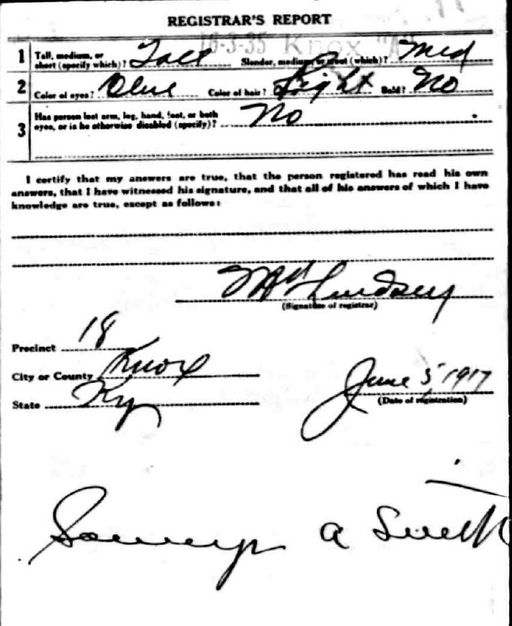 REGISTRAR'S REPORT
16-3-35 Knox "A"
1 Tall, medium, or short (specify which)? Tall Slender, medium, or stout (which)? Med
2 Color of eyes? Blue Color of hair? Light Bald? No
3 Has person lost arm, leg, hand, foot, or both
eyes, or is he otherwise disabled (specify)? No
I certify that my answers are true, that the person registered has read his own
answers, that I have witnessed his signature, and that all of his answers of which I have
knowledge are true, except as follows:
Lindsey
(Signature of registrar)
Precinct 18
City or County Knox
State Ky
June 5, 1917
(Date of registration)
A Smith